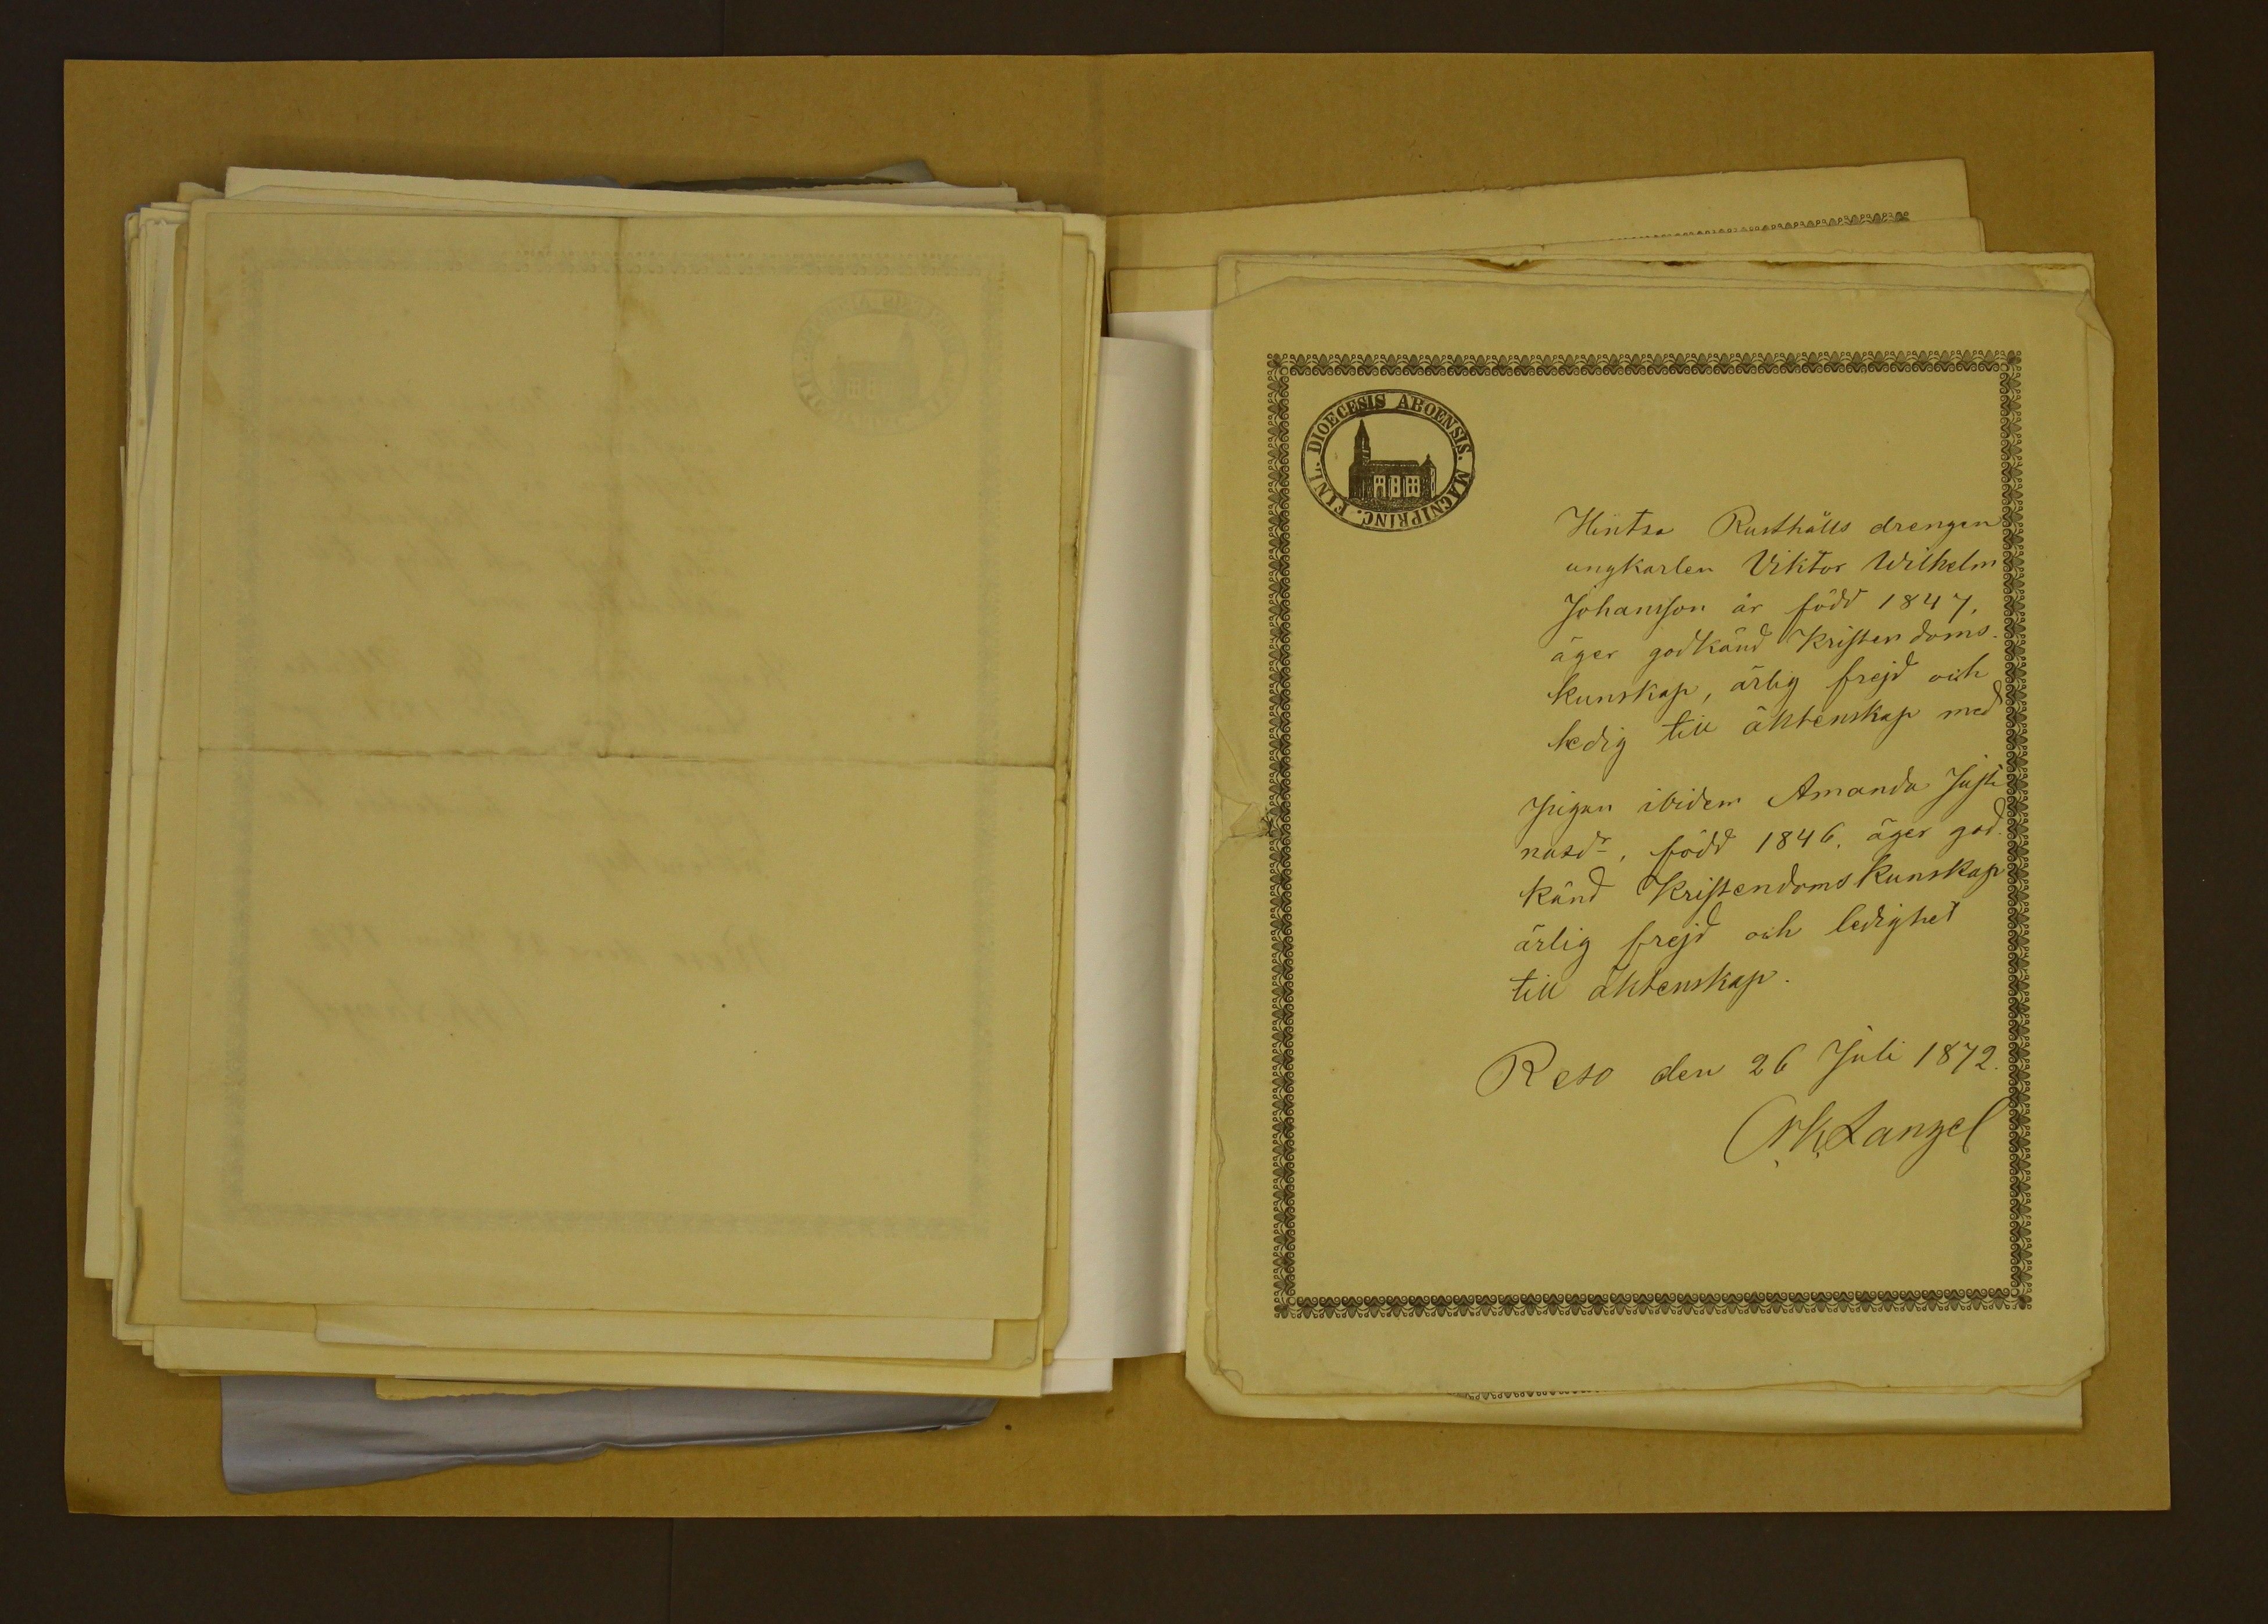 FINL. DIOECESIS ABOENSIS. MAGNIPRINC.
Hintsa Rusthålls drengen
ungkarlen Viktor Wilhelm
Johansson är född 1847,
äger godkänd Kristendoms-
kunskap, ärlig frejd och
ledig till äktenskap med
Pigan ibidem Amanda Justi
nasdr, född 1846, äger god-
känd Kristendomskunskap
ärlig frejd och ledighet
till äktenskap.
Reso den 26 Juli 1872.
Langel